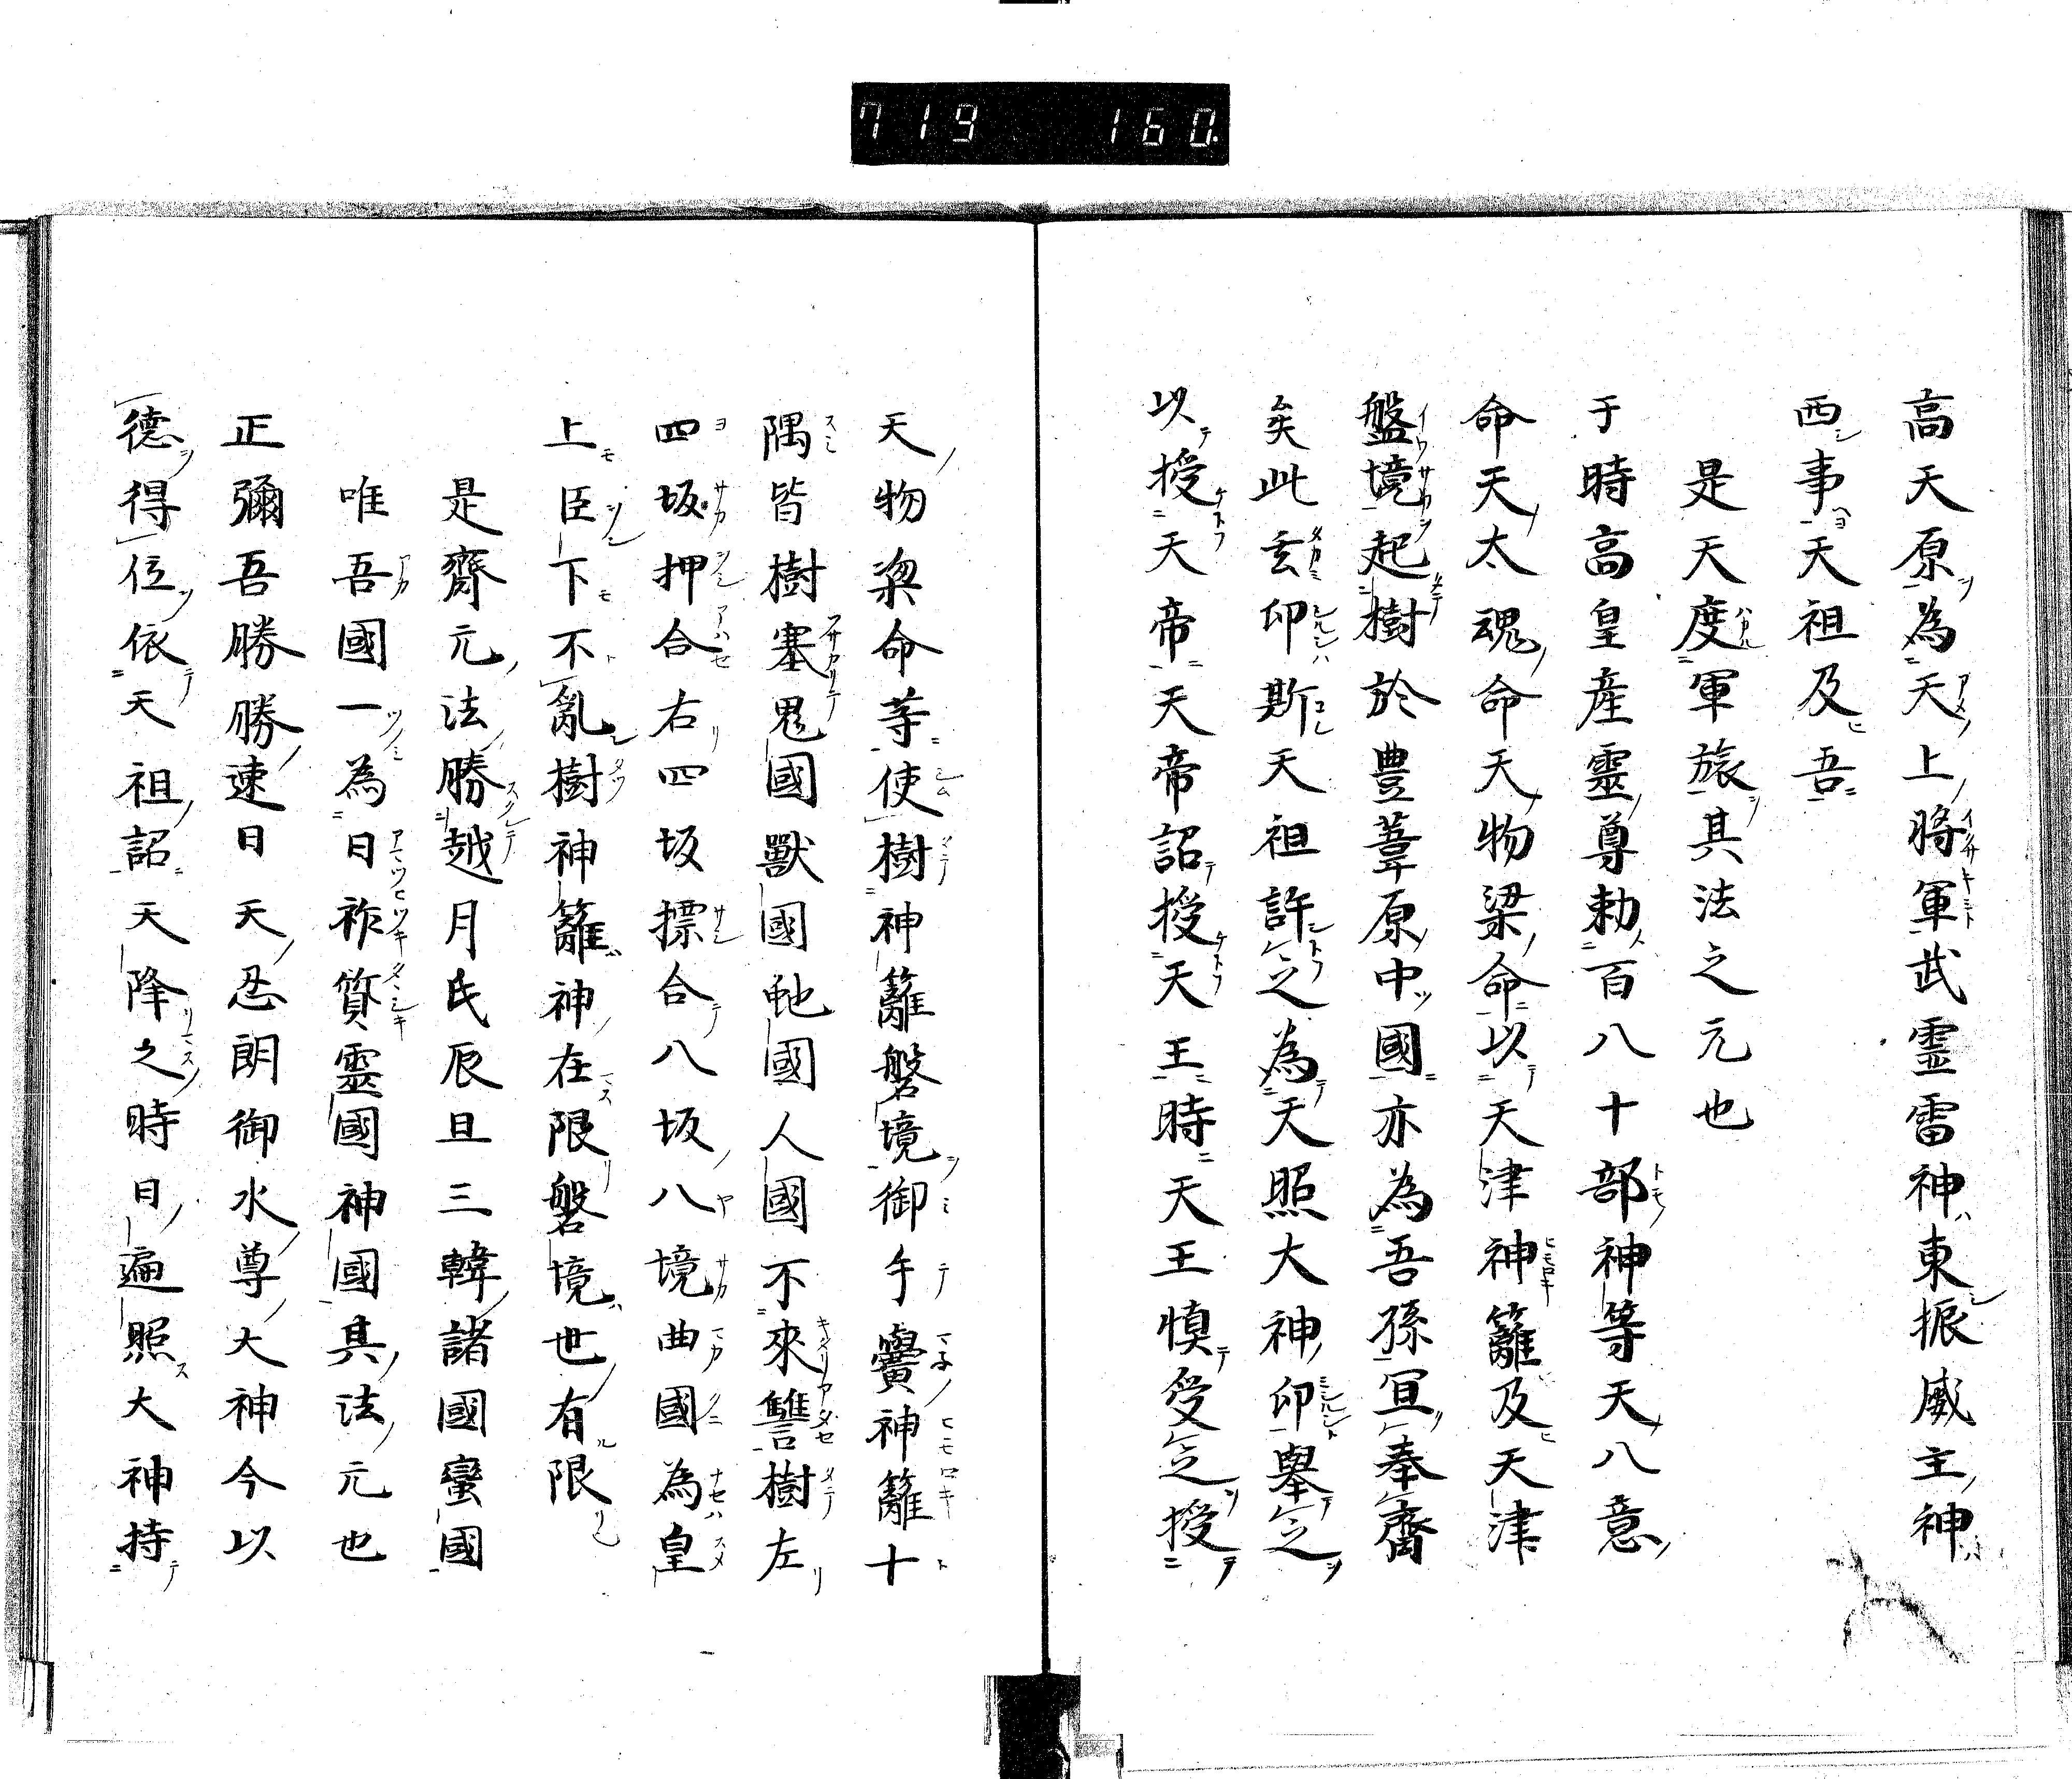 719 160
高天原為天上將軍武霊雷神東振威主神
西事天祖及吾
是天度軍旅其法之元也
于時高皇産靈尊勅百八十部神等天八意
命天太魂命天物梁命以天津神籬及天津
盤境起樹於豊葦原中國亦為吾孫宜奉齋
矣此玄印斯天祖許之為天照大神印舉之
以授天帝天帝詔授天王時天王慎受之授
天物梁命等使樹神籬磐境御手竇神籬十
隅皆樹塞鬼國獸國虵國人國不來讐樹左
四坂押合右四坂摽合八坂八境曲國為皇
上臣下不亂樹神籬神在限磐境世有限
是齋元法勝越月氏辰旦三韓諸國蠻國
唯吾國一為日祚質靈國神國其法元也
正彌吾勝勝速日天忍朗御水尊大神今以
德得位依天祖詔天降之時日遍照大神持